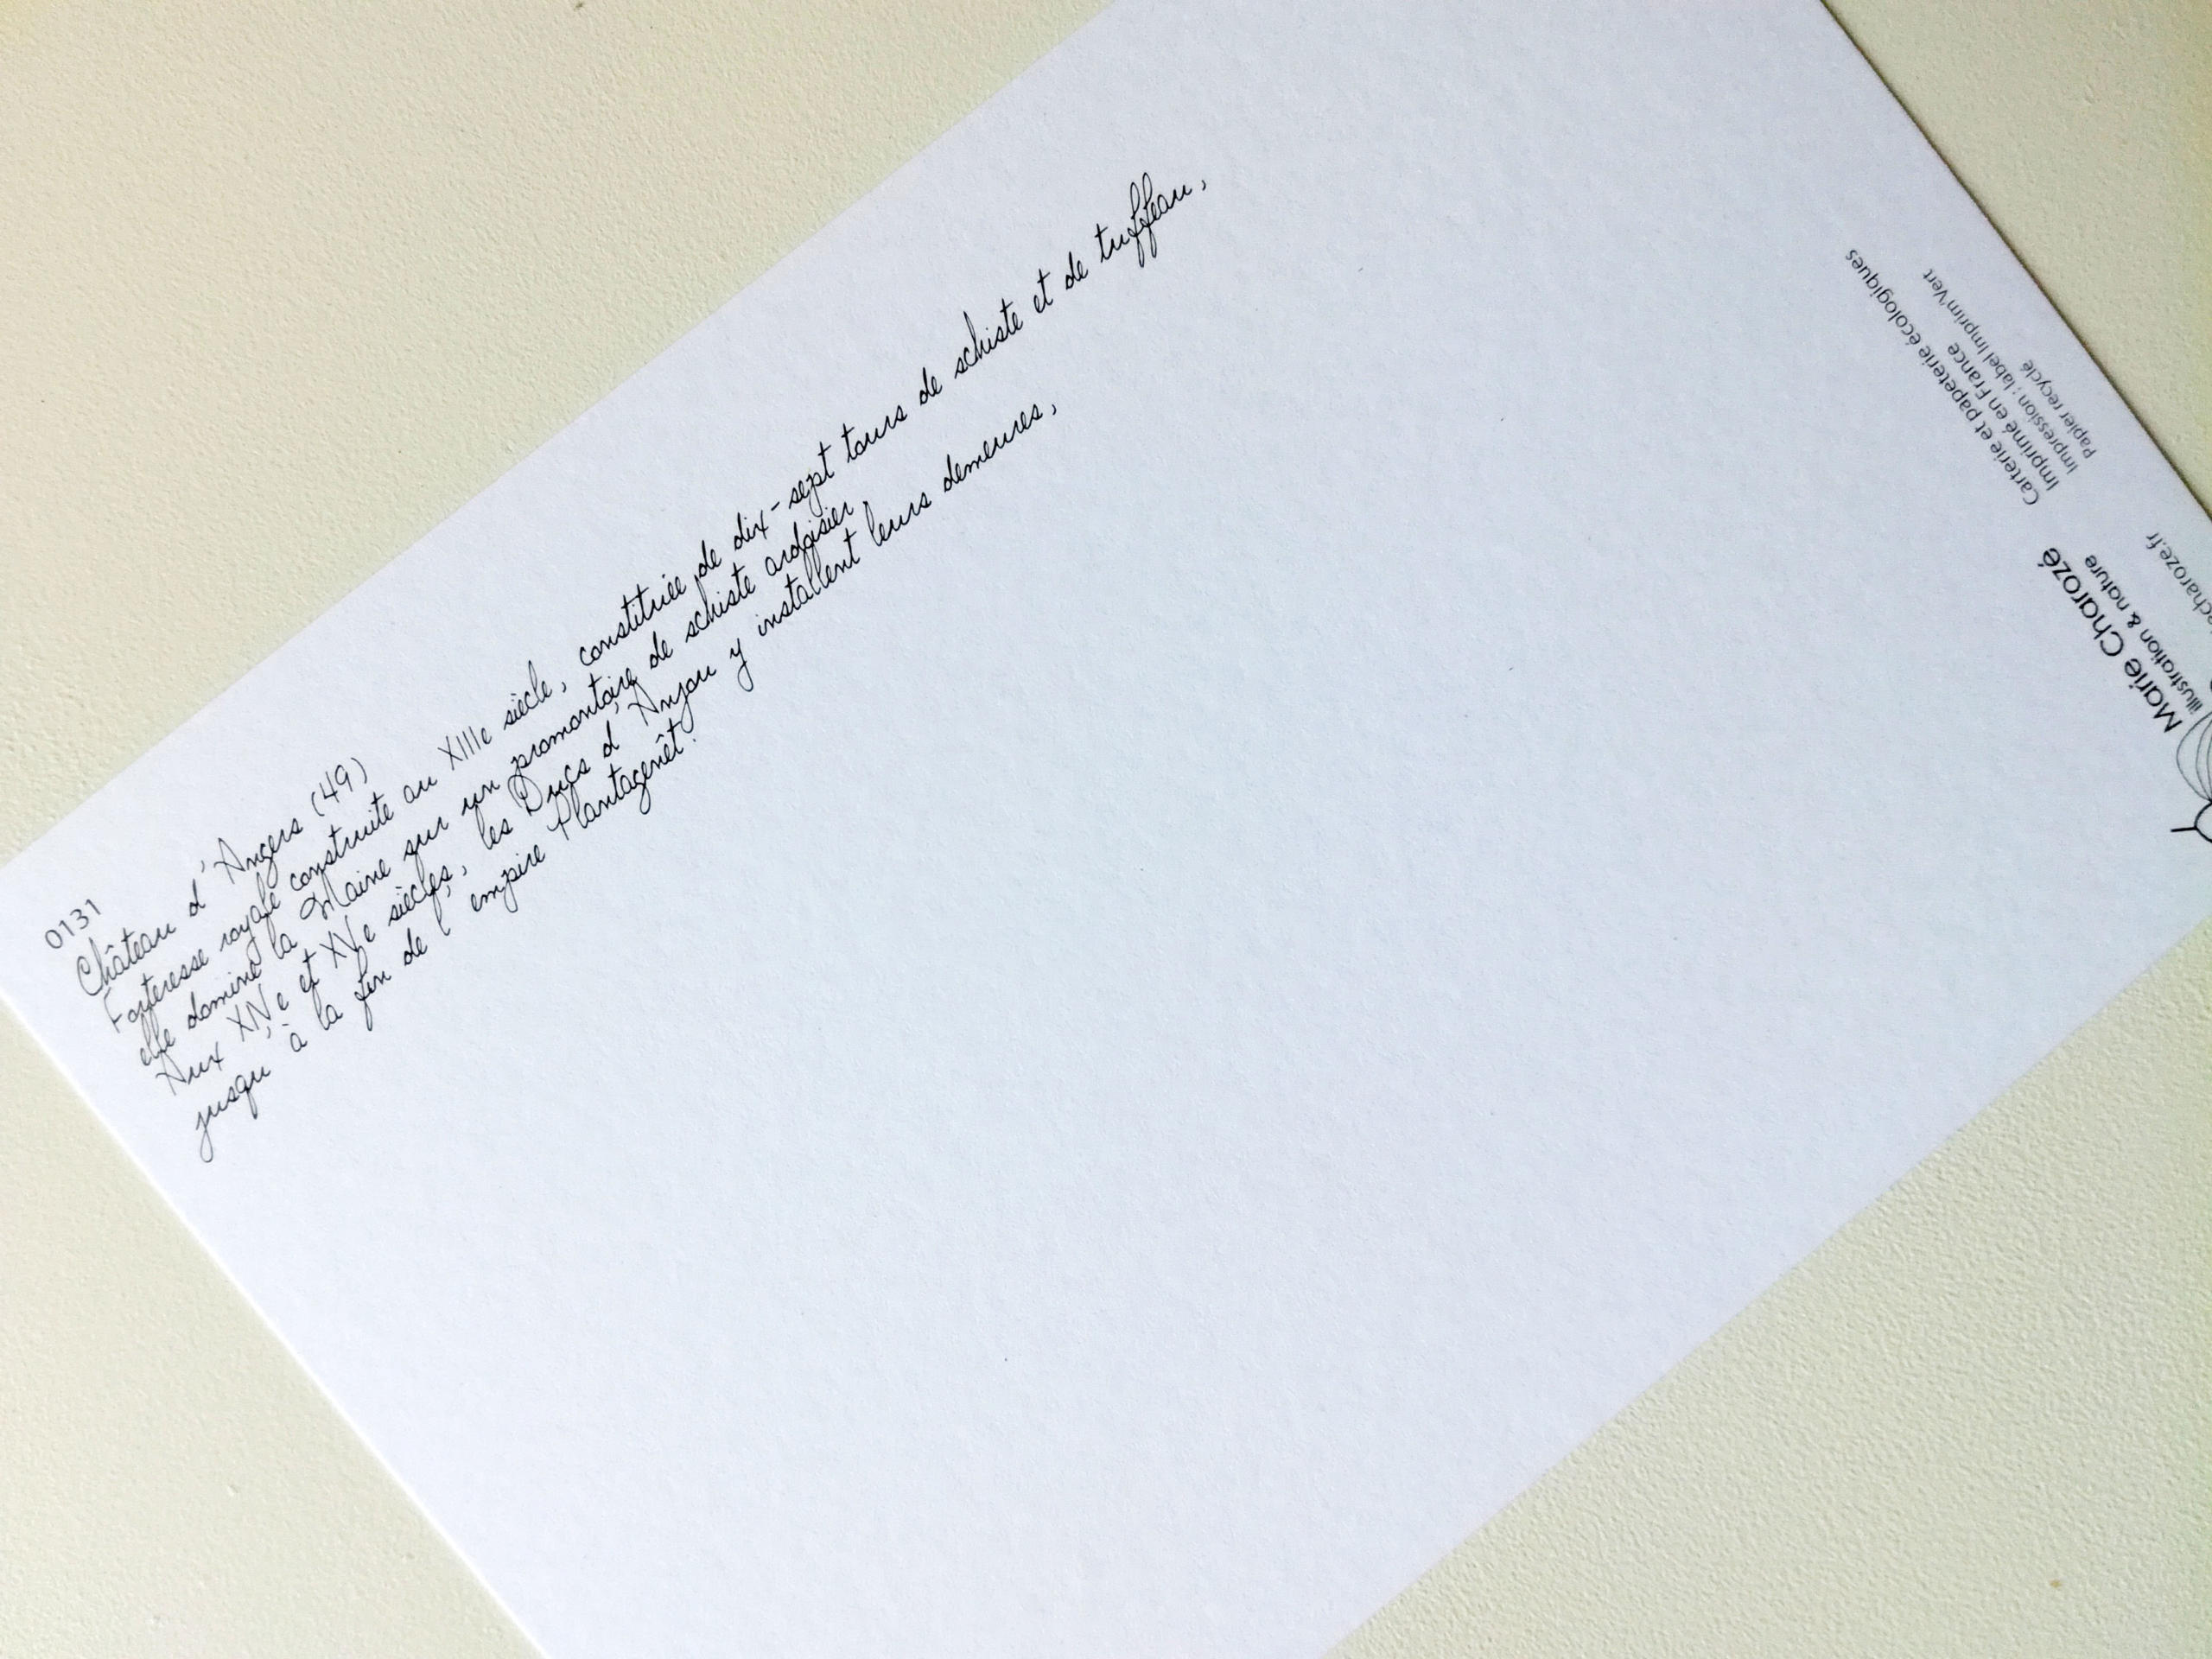 0131
Château d'Angers (49)
Forteresse royale construite au XIIIe siècle, constituée de dix-sept tours de schiste et de tuffeau,
elle domine la Maine sur un promontoire de schiste ardoisier.
Aux XIVe et XVe siècles, les Ducs d'Anjou y installent leurs demeures,
jusqu'à la fin de l'empire Plantagenêt.
Marie Charozé
illustration & nature
charoze.fr
Carterie et papeterie écologiques
Imprimé en France
Impression : label Imprim'Vert
Papier recyclé